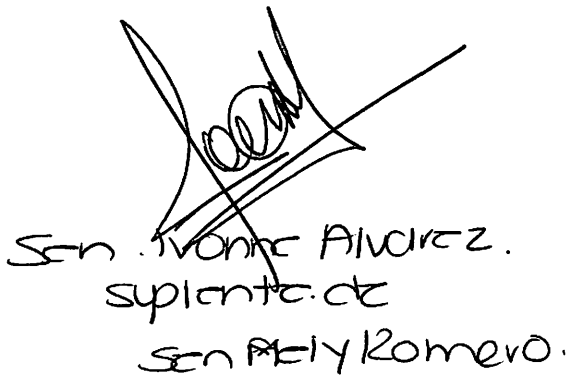 Sen. Ivonne Alvarez.
suplente. de
Sen Mely Romero.